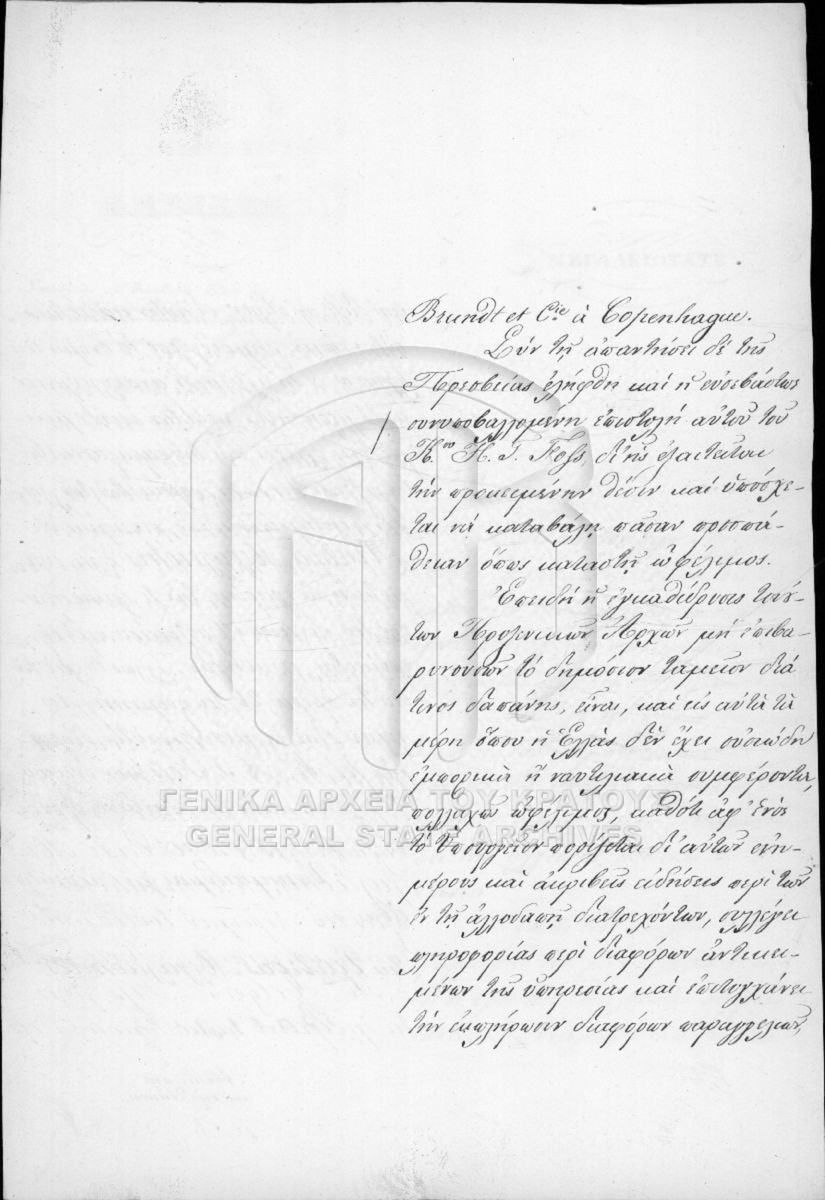 Brundt et Cie à Copenhague.
Σὺν τῇ ἀπαντήσει δὲ τῆς
Πρεσβείας ἐλήφθη καὶ ἡ εὐσεβάστως
συνυποβαλλομένη ἐπιστολὴ αὐτοῦ τοῦ
Κ.ου H. T. Foss, δι' ἧς
τὴν προκειμένην θέσιν καὶ ὑπόσχε-
ται νὰ καταβάλῃ πᾶσαν προσπά-
θειαν ὅπως καταστῇ ὠφέλιμος.
Ἐπειδὴ ἡ ἐγκαθίδρυσις τοιού-
των Προξενικῶν Ἀρχῶν μὴ ἐπιβα-
ρυνουσῶν τὸ δημόσιον ταμεῖον διά
τινος δαπάνης, εἶναι, καὶ εἰς αὐτὰ τὰ
μέρη ὅπου ἡ Ἑλλὰς δὲν ἔχει οὐσιώδη
ἐμπορικὰ ἢ ναυτιλιακὰ συμφέροντα,
πολλαχῶς ὠφέλιμος, καθότι ἀφ' ἑνὸς
τὸ Ὑπουργεῖον πορίζεται δι' αὐτῶν εὐη-
μέρους καὶ ἀκριβεῖς εἰδήσεις περὶ τῶν
ἐν τῇ ἀλλοδαπῇ διατρεχόντων, συλλέγει
πληροφορίας περὶ διαφόρων ἀντικει-
μένων τῆς ὑπηρεσίας καὶ ἐπιτυγχάνει
τὴν ἐκπλήρωσιν διαφόρων παραγγελιῶν,
ΓΕΝΙΚΑ ΑΡΧΕΙΑ ΤΟΥ ΚΡΑΤΟΥΣ
GENERAL STATE ARCHIVES